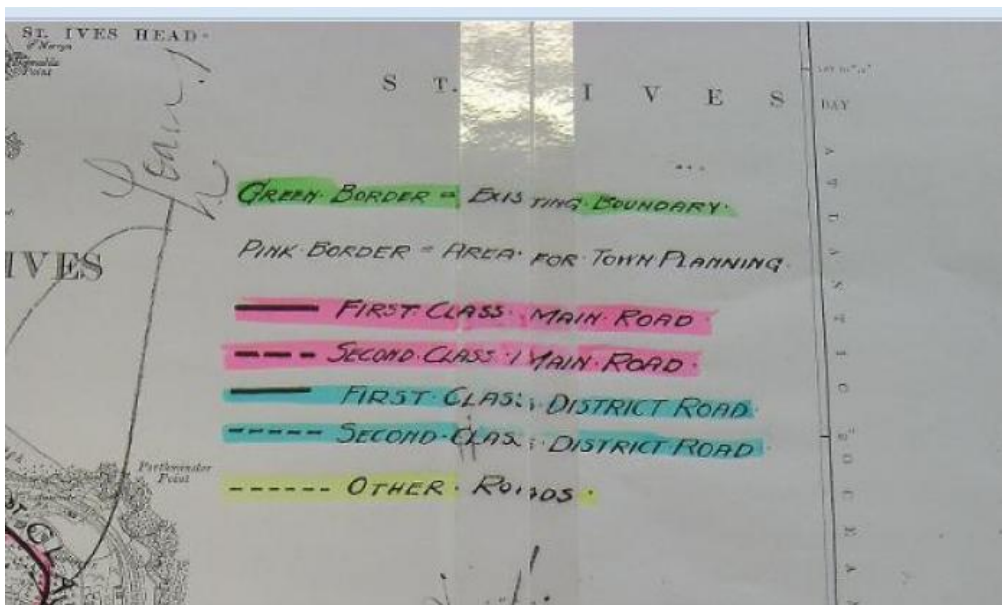 ST. IVES HEAD
S T. I V E S
DAY
IVES
GREEN BORDER = EXISTING BOUNDARY.
PINK BORDER = AREA FOR TOWN PLANNING.
FIRST CLASS MAIN ROAD
SECOND CLASS MAIN ROAD.
FIRST CLASS DISTRICT ROAD.
SECOND CLASS DISTRICT ROAD
OTHER ROADS.
Porthminster
Point
ATLANTIC OCEAN